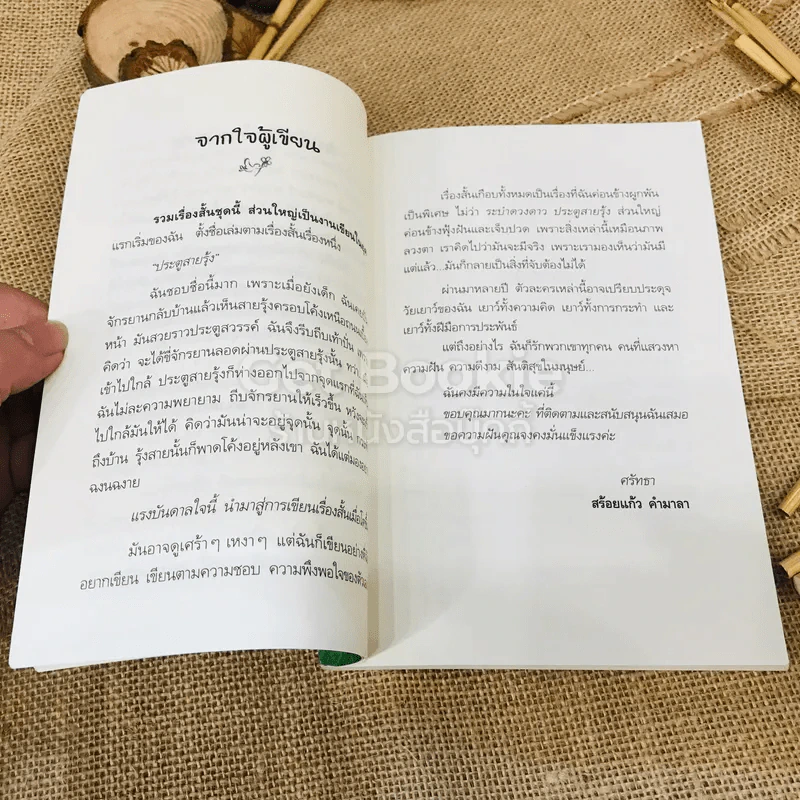 จากใจผู้เขียน
รวมเรื่องสั้นชุดนี้ ส่วนใหญ่เป็นงานเขียนใน
แรกเริ่มของฉัน ตั้งชื่อเล่มตามเรื่องสั้นเรื่องหนึ่ง
“ประตูสายรุ้ง”
ฉันชอบชื่อนี้มาก เพราะเมื่อยังเด็ก ฉัน
จักรยานกลับบ้านแล้วเห็นสายรุ้งครอบโค้งเหนือถนน
หน้า มันสวยราวประตูสวรรค์ ฉันจึงรีบถีบเท้าปั่น
คิดว่า จะได้ขี่จักรยานลอดผ่านประตูสายรุ้งนั้น ทว่า
เข้าไปใกล้ ประตูสายรุ้งก็ห่างออกไปจากจุดแรกที่ฉัน
ฉันไม่ละความพยายาม ถีบจักรยานให้เร็วขึ้น
ไปใกล้มันให้ได้ คิดว่ามันน่าจะอยู่จุดนั้น จุดนั้น
ถึงบ้าน รุ้งสายนั้นก็พาดโค้งอยู่หลังเขา ฉันได้แต่มอง
ฉงนฉงาย
แรงบันดาลใจนี้ นำมาสู่การเขียนเรื่องสั้น
มันอาจดูเศร้าๆ เหงาๆ แต่ฉันก็เขียนอย่าง
อยากเขียน เขียนตามความชอบ ความพึงพอใจของ
เรื่องสั้นเกือบทั้งหมดเป็นเรื่องที่ฉันค่อนข้างผูกพัน
เป็นพิเศษ ไม่ว่า ระบำดวงดาว ประตูสายรุ้ง ส่วนใหญ่
ค่อนข้างฟุ้งฝันและเจ็บปวด เพราะสิ่งเหล่านี้เหมือนภาพ
ลวงตา เราคิดไปว่ามันจะมีจริง เพราะเรามองเห็นว่ามันมี
แต่แล้ว...มันก็กลายเป็นสิ่งที่จับต้องไม่ได้
ผ่านมาหลายปี ตัวละครเหล่านี้อาจเปรียบประดุจ
วัยเยาว์ของฉัน เยาว์ทั้งความคิด เยาว์ทั้งการกระทำ และ
เยาว์ทั้งฝีมือการประพันธ์
แต่ถึงอย่างไร ฉันก็รักพวกเขาทุกคน คนที่แสวงหา
ความฝัน ความดีงาม สันติสุขในมนุษย์...
ฉันคงมีความในใจแค่นี้
ขอบคุณมากนะคะ ที่ติดตามและสนับสนุนฉันเสมอ
ขอความฝันคุณจงคงมั่นแข็งแรงค่ะ
ศรัทธา
สร้อยแก้ว คำมาลา